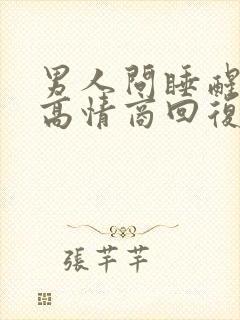 男人問睡醒
高情商回復
張芊芊